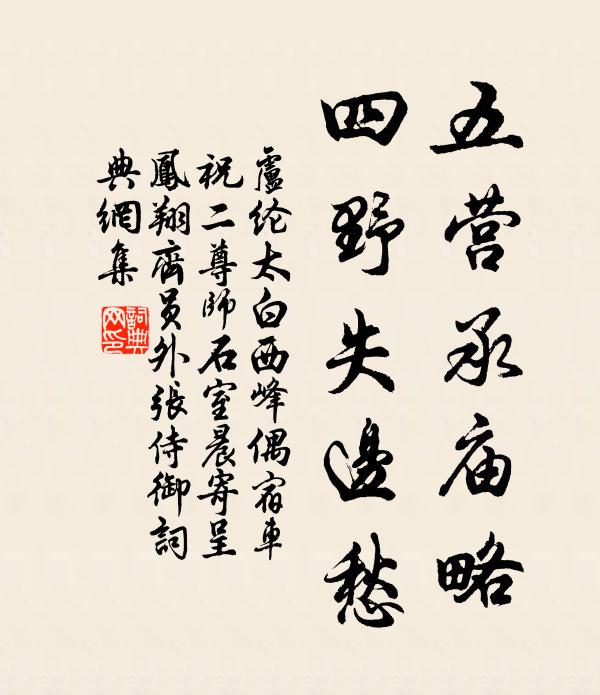 五营承庙略
四野失邊愁
盧纶太白西峰偶宿車
祝二尊師石室晨寄呈
鳳翔齊员外張侍御詞
典網集
詞典网印